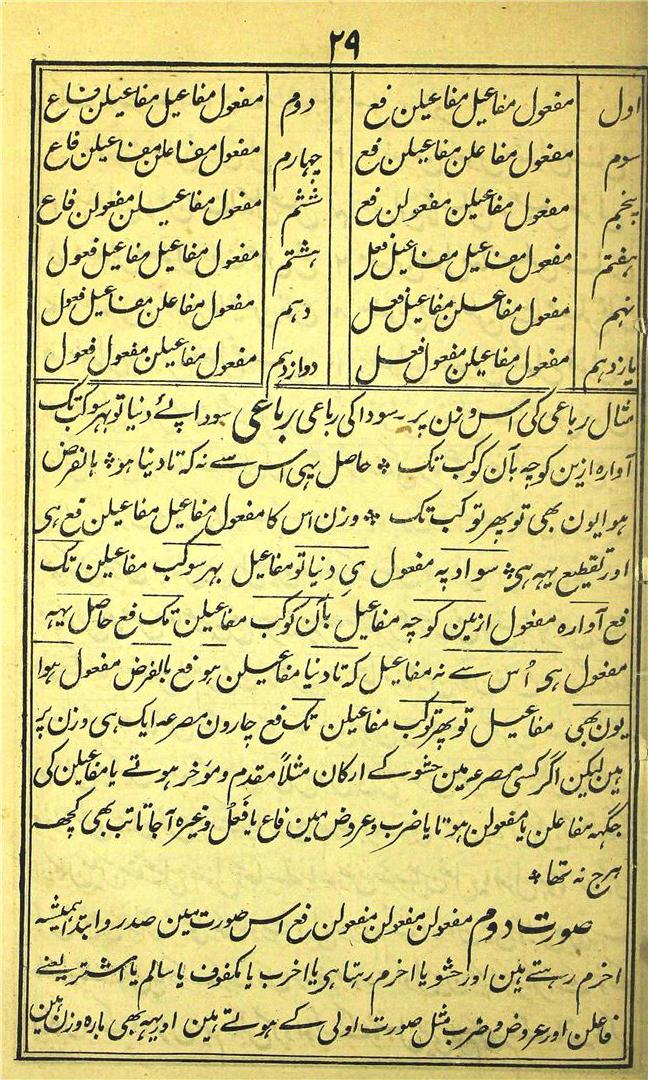 ۲۹
اول مفعول مفاعیل مفاعیلن فع دوم مفعول مفاعیل مفاعیلن فاع
سوم مفعول مفاعلن مفاعیلن فع چہارم مفعول مفاعلن مفاعیلن فاع
پنجم مفعول مفاعیلن مفعولن فع ششم مفعول مفاعیلن مفعولن فاع
ہفتم مفعول مفاعیل مفاعیل فعل ہشتم مفعول مفاعیل مفاعیل فعول
نہم مفعول مفاعلن مفاعیل فعل دہم مفعول مفاعلن مفاعیل فعول
یازدہم مفعول مفاعیلن مفعول فعل دوازدہم مفعول مفاعیلن مفعول فعول
مثال رباعی کی اس وزن پر۔ سودا کی رباعی رباعی سودا پئے دنیا تو بہر سو کب تک
آوارہ ازین کوچہ بآن کو کب تک ٭ حاصل یہی اس سے نہ کہ تا دنیا ہو ٭ بالفرض
ہوا یون بھی تو پھر تو کب تک ٭ وزن اس کا مفعول مفاعیل مفاعیلن فع ہی
اور تقطیع یہہ ہی ٭ سوادپہ مفعول یِ دنیا تو مفاعیل بہر سو کب مفاعیلن تک
فع آوارہ مفعول ازین کوچہ مفاعیل بآن کو کب مفاعیلن تک فع حاصل یہہ
مفعول ہی اُس سے نہ مفاعیل کہ تا دنیا مفاعیلن ہو فع بالفرض مفعول ہوا
یون بھی مفاعیل تو پھر تو کب مفاعیلن تک فع چارون مصرعہ ایک ہی وزن پر
ہین لیکن اگر کسی مصرعہ مین حشو کے ارکان مثلاً مقدم و مؤخر ہوتے یا مفاعیلن کی
جگہہ مفاعلن یا مفعولن ہوتا یا ضرب و عروض مین فاع یا فَعَل وغیرہ آ جاتا تب بھی کچھہ
ہرج نہ تھا ٭
صورت دوم مفعولن مفعولن مفعولن فع اس صورت مین صدر و ابتدا ہمیشہ
اخرم رہتے ہین اور حشو یا اخرم رہتا ہی یا اخرب یا مکفوف یا سالم یا اشتر یعنے
فاعلن اور عروض و ضرب مثل صورت اولی کے ہوتے ہین اور یہہ بھی بارہ وزن ہین